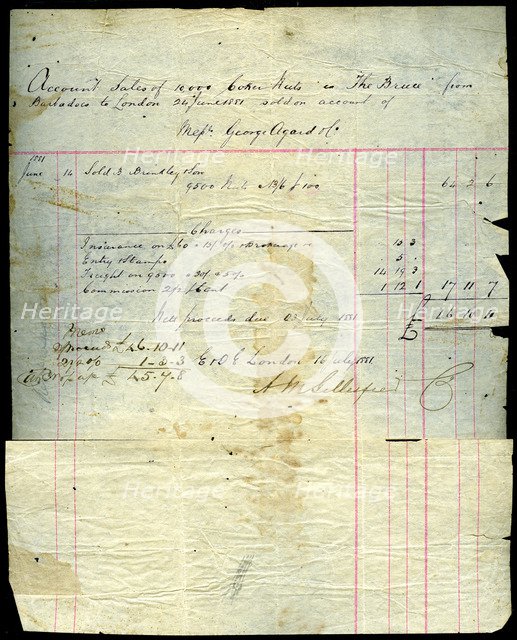 Account Sales of 10000 Coker Nuts ex "The Bruce" from
Barbadoes to London 24 June 1881 sold on account of
Messrs George Agard & Co
1881
June 14 Sold B Brandley & Son
9500 Nuts 13/6 100 64 2 6
Charges
Insurance on £60 15/ Brokerage 15 3
Entry & Stamps 5
Freight on 9500 30/ 5 14 19 3
Commission 2½ Cent 1 12 1 17 11 7
Nett proceeds due July 1881 £ 46 10 11
£46-10-11
1-3-3 E & O E London 16 July 1881
£45-7-8
Heritage
Heritage
Heritage
Heritage
Heritage
Heritage
Heritage
Heritage